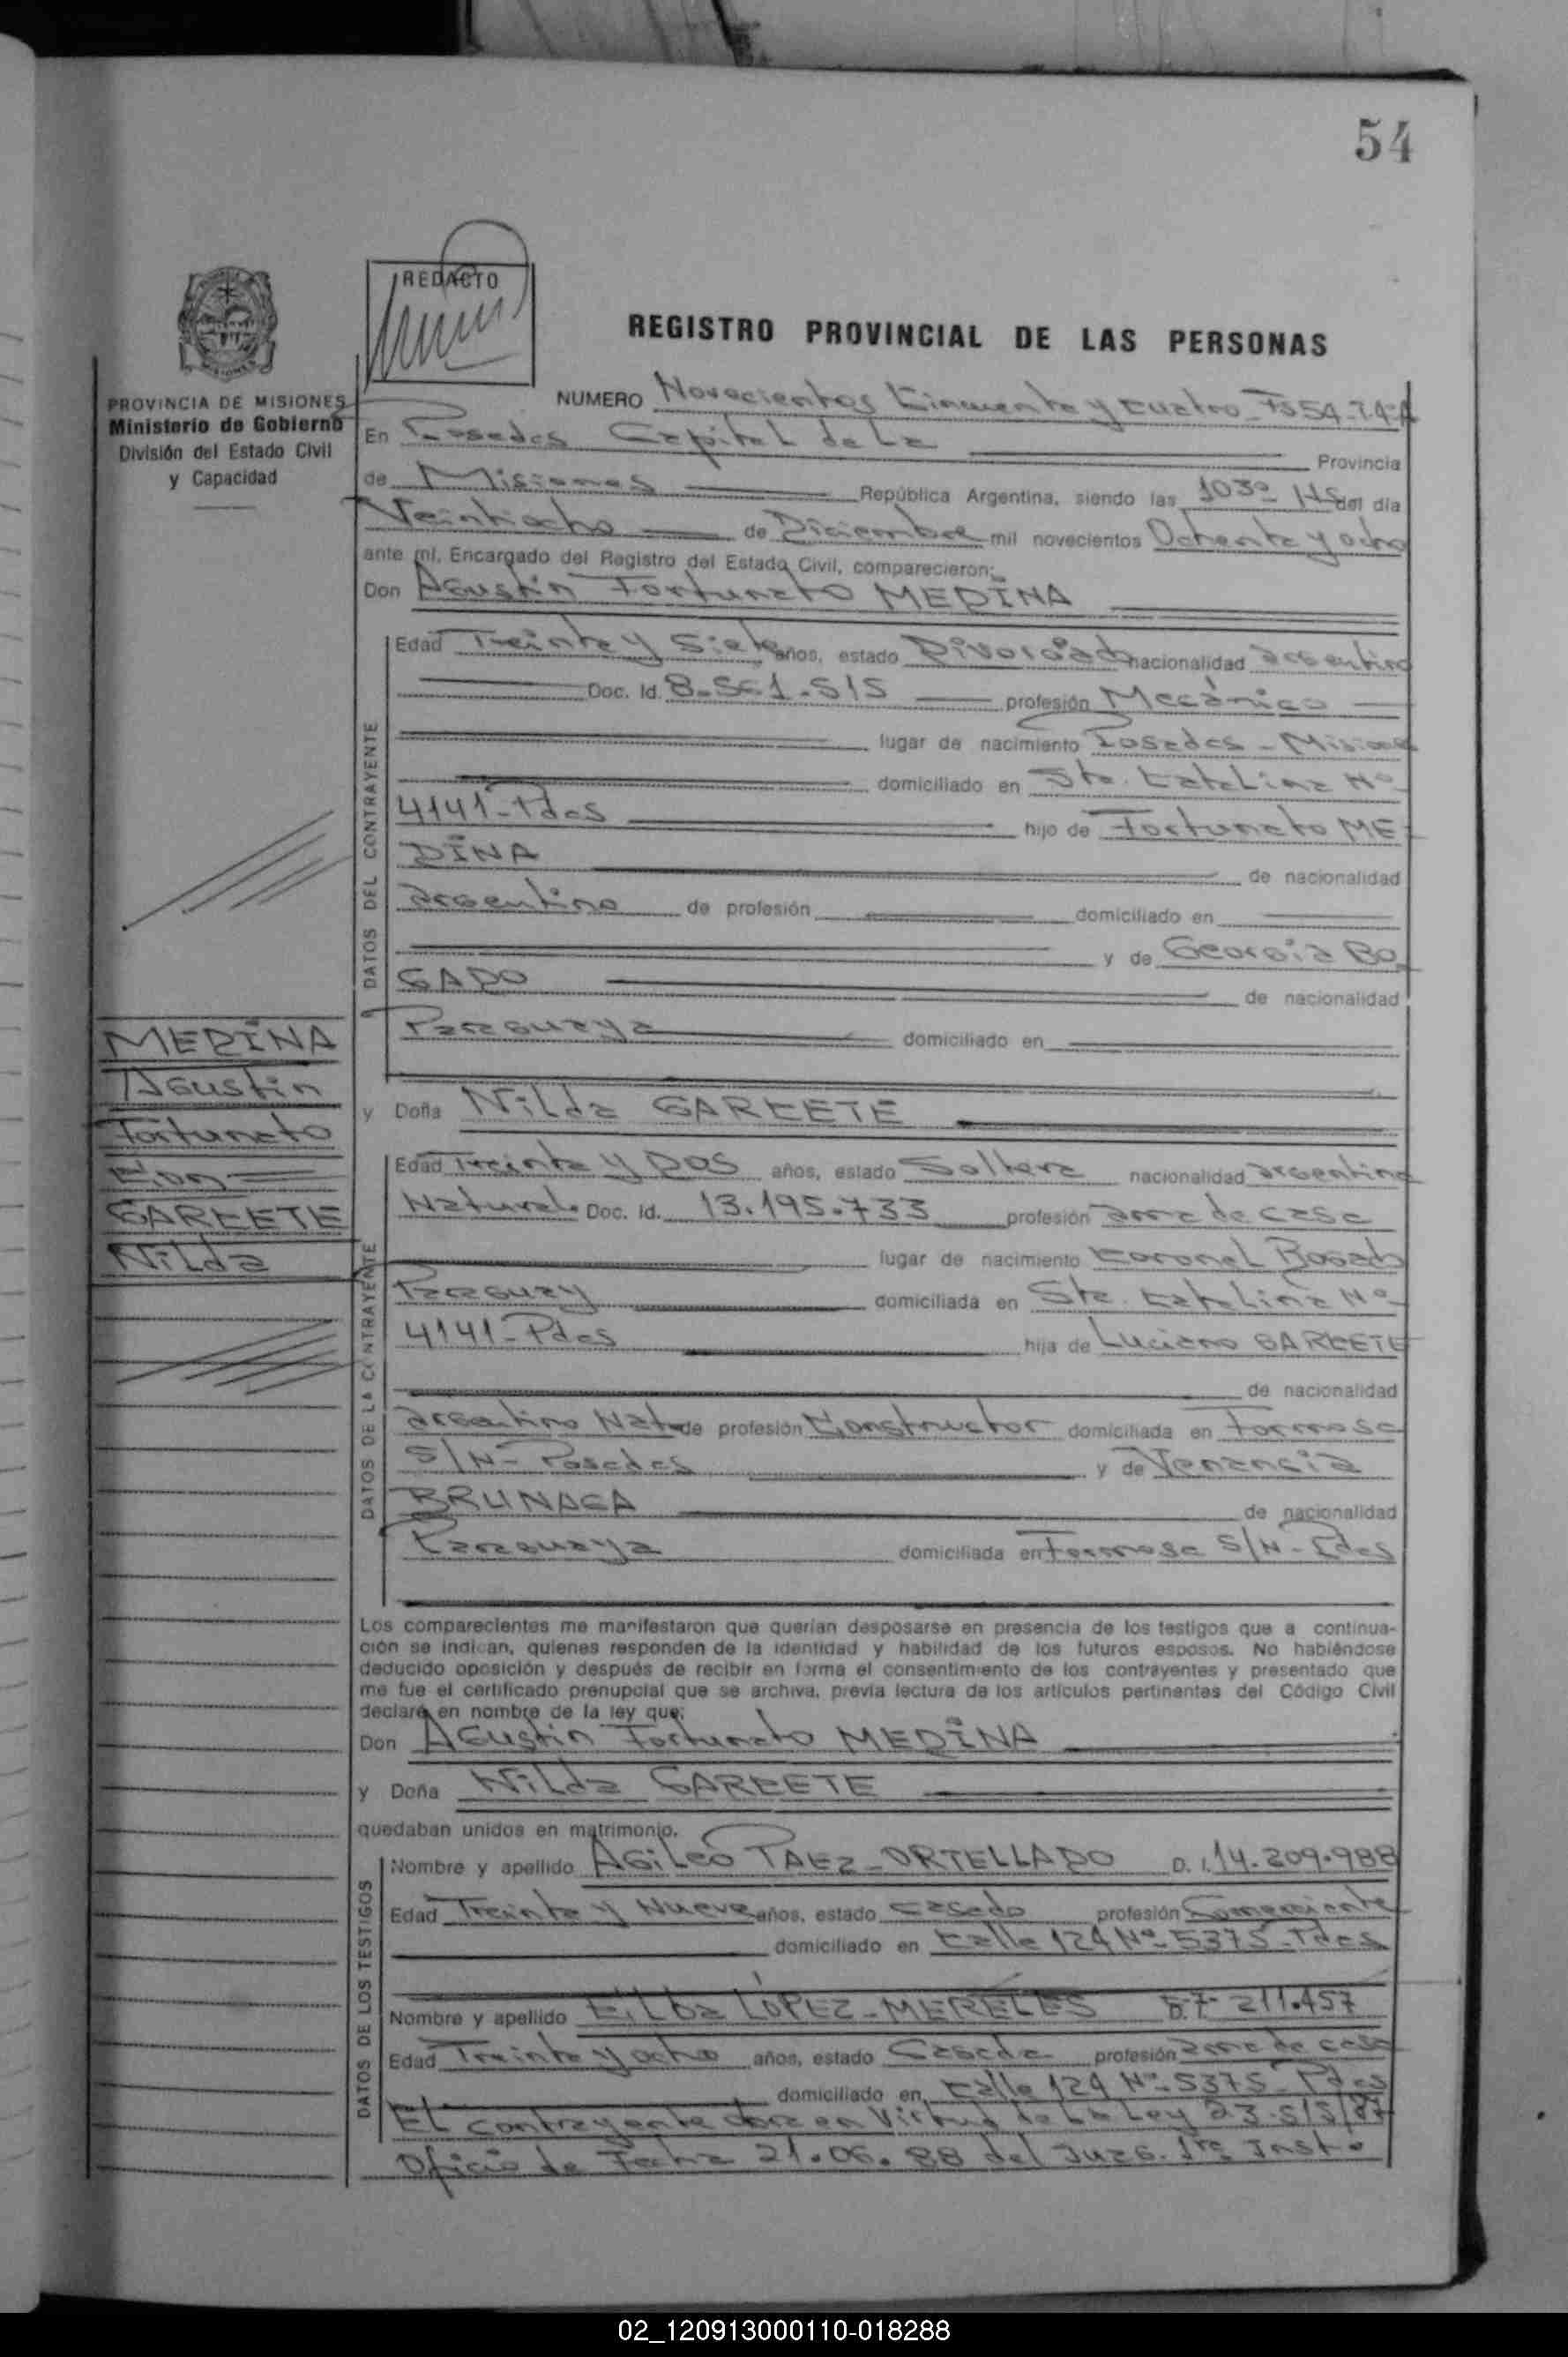 54
REDACTO
REGISTRO PROVINCIAL DE LAS PERSONAS
PROVINCIA DE MISIONES
Ministerio de Gobierno
División del Estado Civil
y Capacidad
NUMERO Novecientos Cincuenta y cuatro Fs 54-T4ºA
En Posadas Capital de La Provincia
de Misiones República Argentina, siendo las 1030 Hs del día
Veintiocho de Diciembre mil novecientos Ochenta y ocho
ante mí, Encargado del Registro del Estado Civil, comparecieron:
Don Agustín Fortunato MEDINA
DATOS DEL CONTRAYENTE
Edad Treinta y Siete años, estado Divorciado nacionalidad argentino
Doc. Id. 8.561.515 profesión Mecánico
lugar de nacimiento Posadas - Misiones
domiciliado en Sta. Catalina Nº
4141-Pdas hijo de Fortunato ME-
DINA de nacionalidad
argentino de profesión domiciliado en
y de Georgia BO
GADO de nacionalidad
Paraguaya domiciliado en
MEDINA
Agustin
Fortunato
Con
GARCETE
Nilda
y Doña Nilda GARCETE
DATOS DE LA CONTRAYENTE
Edad Treinta y Dos años, estado Soltera nacionalidad argentina
Natural. Doc. Id. 13.195.733 profesión ama de casa
lugar de nacimiento Coronel Bogado
Paraguay domiciliada en Sta. Catalina Nº
4141-Pdas hija de Luciano GARCETE
de nacionalidad
argentino Nat. de profesión Constructor domiciliada en Formosa
S/N-Posadas y de Venancia
BRUNAGA de nacionalidad
Paraguaya domiciliada en Formosa S/N-Pdas
Los comparecientes me manifestaron que querían desposarse en presencia de los testigos que a continua-
ción se indican, quienes responden de la identidad y habilidad de los futuros esposos. No habiéndose
deducido oposición y después de recibir en forma el consentimiento de los contrayentes y presentado que
me fue el certificado prenupcial que se archiva, previa lectura de los artículos pertinentes del Código Civil
declaré en nombre de la ley que:
Don Agustín Fortunato MEDINA
y Doña Nilda GARCETE
quedaban unidos en matrimonio.
DATOS DE LOS TESTIGOS
Nombre y apellido Agileo PAEZ-ORTELLADO D.I. 14.209.988
Edad Treinta y Nueve años, estado Casado profesión Comerciante
domiciliado en Calle 124 Nº-5375-Pdas
Nombre y apellido LÓPEZ-MERELES 211.457
Edad Treinta y ocho años, estado Casada profesión ama de casa
domiciliado en Calle 124 Nº-5375-Pdas
El contrayente en Virtud de La Ley 23.515/87
Oficio de Fecha 21.06.88 del Juzg. 1ra Inst.
02_120913000110-018288